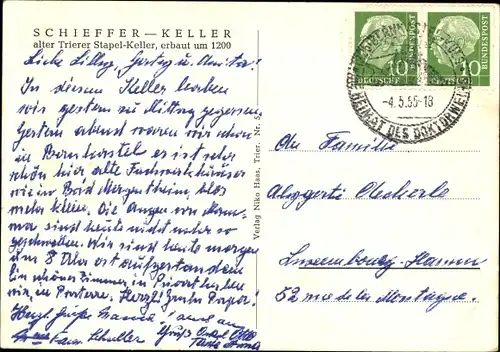 SCHIEFFER — KELLER
alter Trierer Stapel-Keller, erbaut um 1200
In diesem Keller haben
wir gestern zu Mittag gegessen.
Gestern abend waren wir schon
in Bernkastel es ist sehr
schön hier alte Fachwerkhäuser
wie in Bad Mergentheim, blos
mehr klein. Die Augen von Mam-
ma sind heute nicht mehr so
geschwollen. Wir sind heute morgen
um 8 Uhr erst aufgestanden
Ein schönes Zimmer in Privat haben
wir, in Parterre. Herzl. Grüße
Herzl. Grüße
Grüß Onkel Otto
Tante Anna
Verlag Niko Haas, Trier, Nr. 5
DEUTSCHE BUNDESPOST
10
BUNDESPOST
10
-4.5.55-18
HEIMAT DES DOKTORWEINES
An Familie
Luxembourg-Hamm
52 rue de la Montagne.